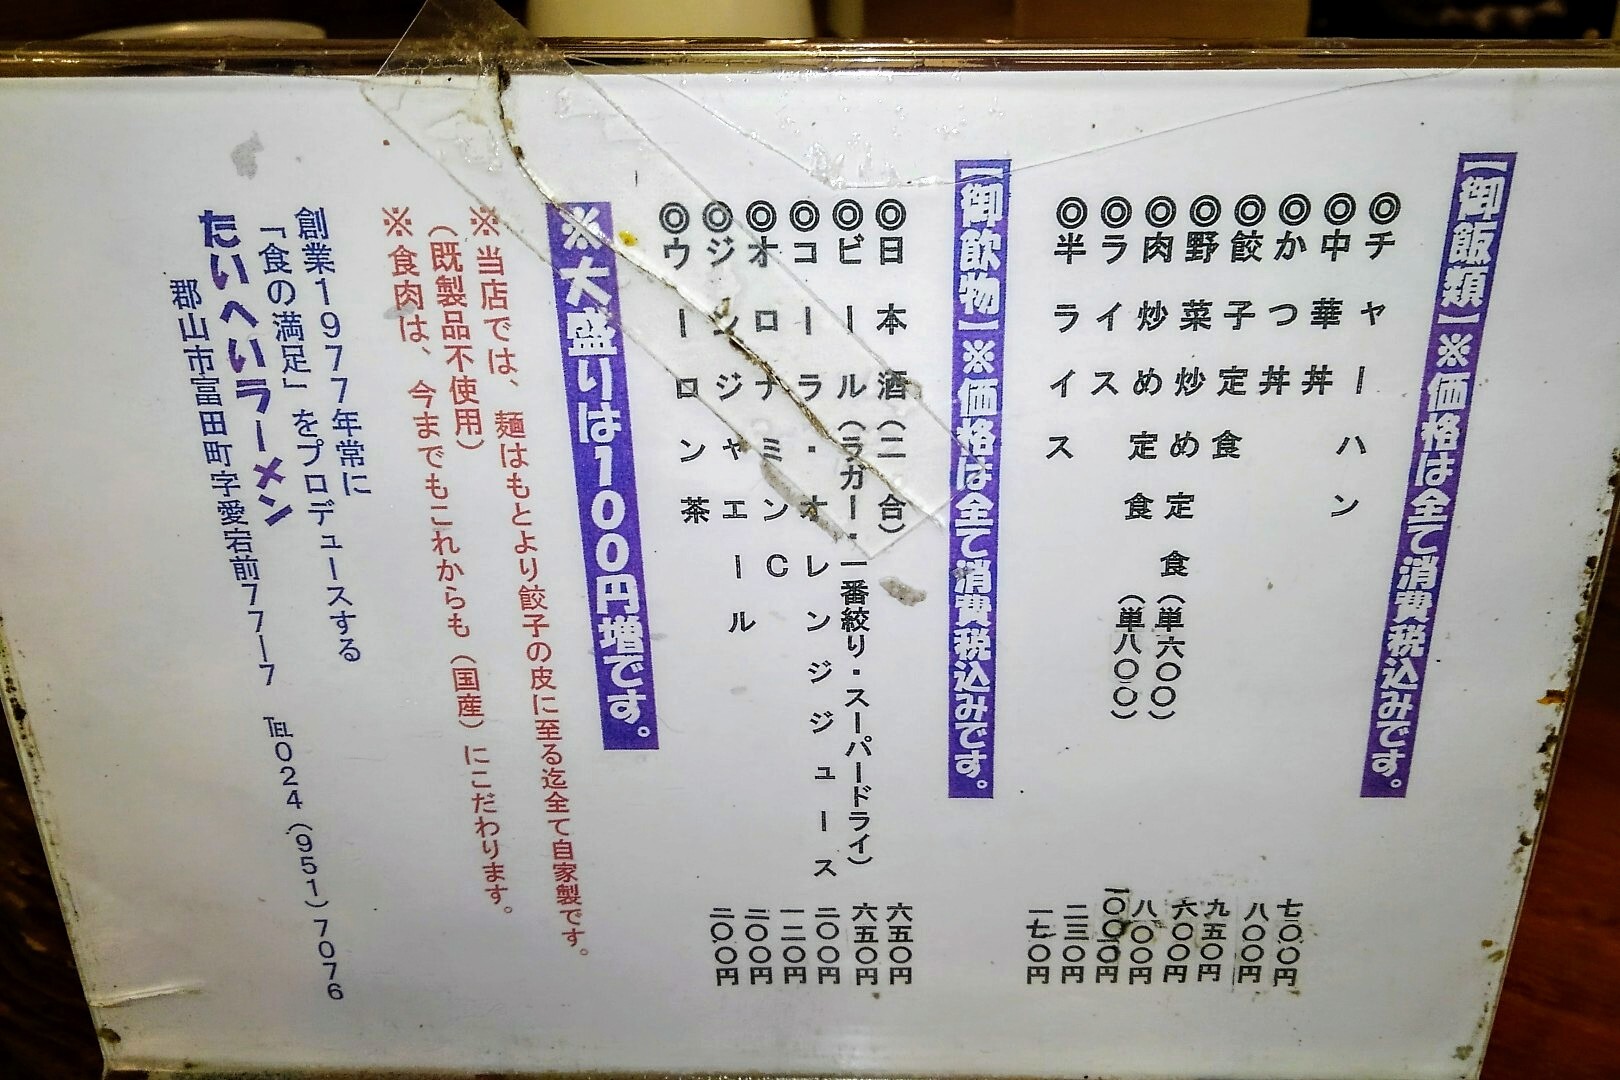 【御飯類】※価格は全て消費税込みです。
◎チャーハン 七〇〇円
◎中華丼 八〇〇円
◎かつ丼 九五〇円
◎餃子定食 六〇〇円
◎野菜炒め定食（単六〇〇） 八〇〇円
◎肉炒め定食（単八〇〇） 一〇〇〇円
◎ライス 二三〇円
◎半ライス 一七〇円
【御飲物】※価格は全て消費税込みです。
◎日本酒（二合） 六五〇円
◎ビール（ラガー・一番絞り・スーパードライ） 六五〇円
◎コーラ・オレンジジュース 二〇〇円
◎オロナミンC 一二〇円
◎ジンジャエール 二〇〇円
◎ウーロン茶 二〇〇円
※大盛りは100円増です。
※当店では、麺はもとより餃子の皮に至る迄全て自家製です。
（既製品不使用）
※食肉は、今までもこれからも（国産）にこだわります。
創業1977年常に
「食の満足」をプロデュースする
たいへいラーメン
郡山市富田町字愛宕前77-7 ℡024（951）7076